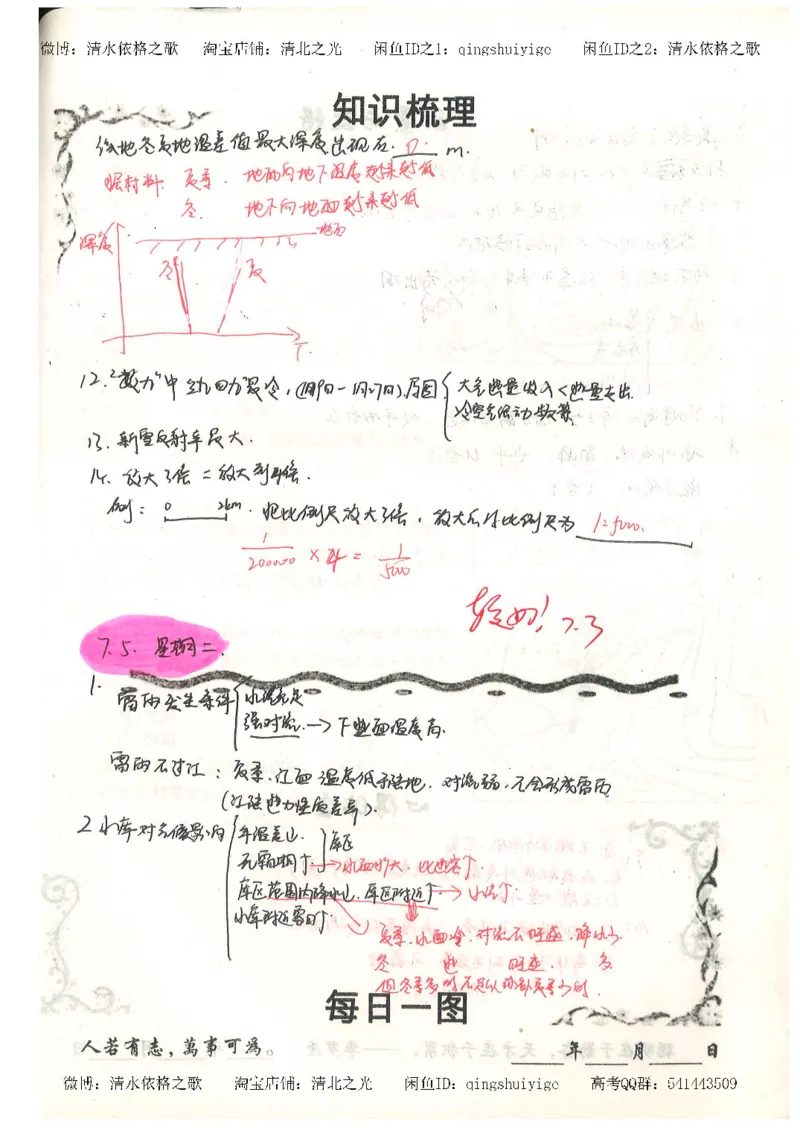 微博：清水依格之歌 淘宝店铺：清北之光 闲鱼ID之1：qingshuiyige 闲鱼ID之2：清水依格之歌
知识梳理
地冬夏地温差值最大深度出现在 0 m.
据材料 夏季. 地面向地下温度越来越低
冬. 地下向地面越来越低
深度 地面
冬 夏
T.
12. "数九"中 三九 四九最冷, (1月9日—1月17日).原因 大气热量收入<热量支出
冷空气活动频繁
13. 新雪反射率最大.
14. 放大3倍 = 放大到4倍.
例: 0 2km. 把比例尺放大3倍, 放大后的比例尺为
1/200000 × 4 = 1/500
较好! 7.3
7.5. 星期二.
1.
雷雨发生条件 水汽充足
强对流. → 下垫面温度高.
雷雨不过江: 夏季, 江面温度低于陆地, 对流弱, 不会形成雷雨
(江陆热力性质差异).
2. 水库对气候影响 年温差小. 库区
无霜期↑. → 水面扩大 比热容↑.
库区范围内降水少. 库区附近↑ → 水汽↑.
水库附近雷雨↑.
夏季. 水面冷. 对流不旺盛. 降水少
冬 热 旺盛. 多
但冬季多的不足以弥补夏季少的.
每日一图
人若有志，萬事可為。 年 月 日
微博：清水依格之歌 淘宝店铺：清北之光 闲鱼ID：qingshuiyige 高考QQ群：541443509